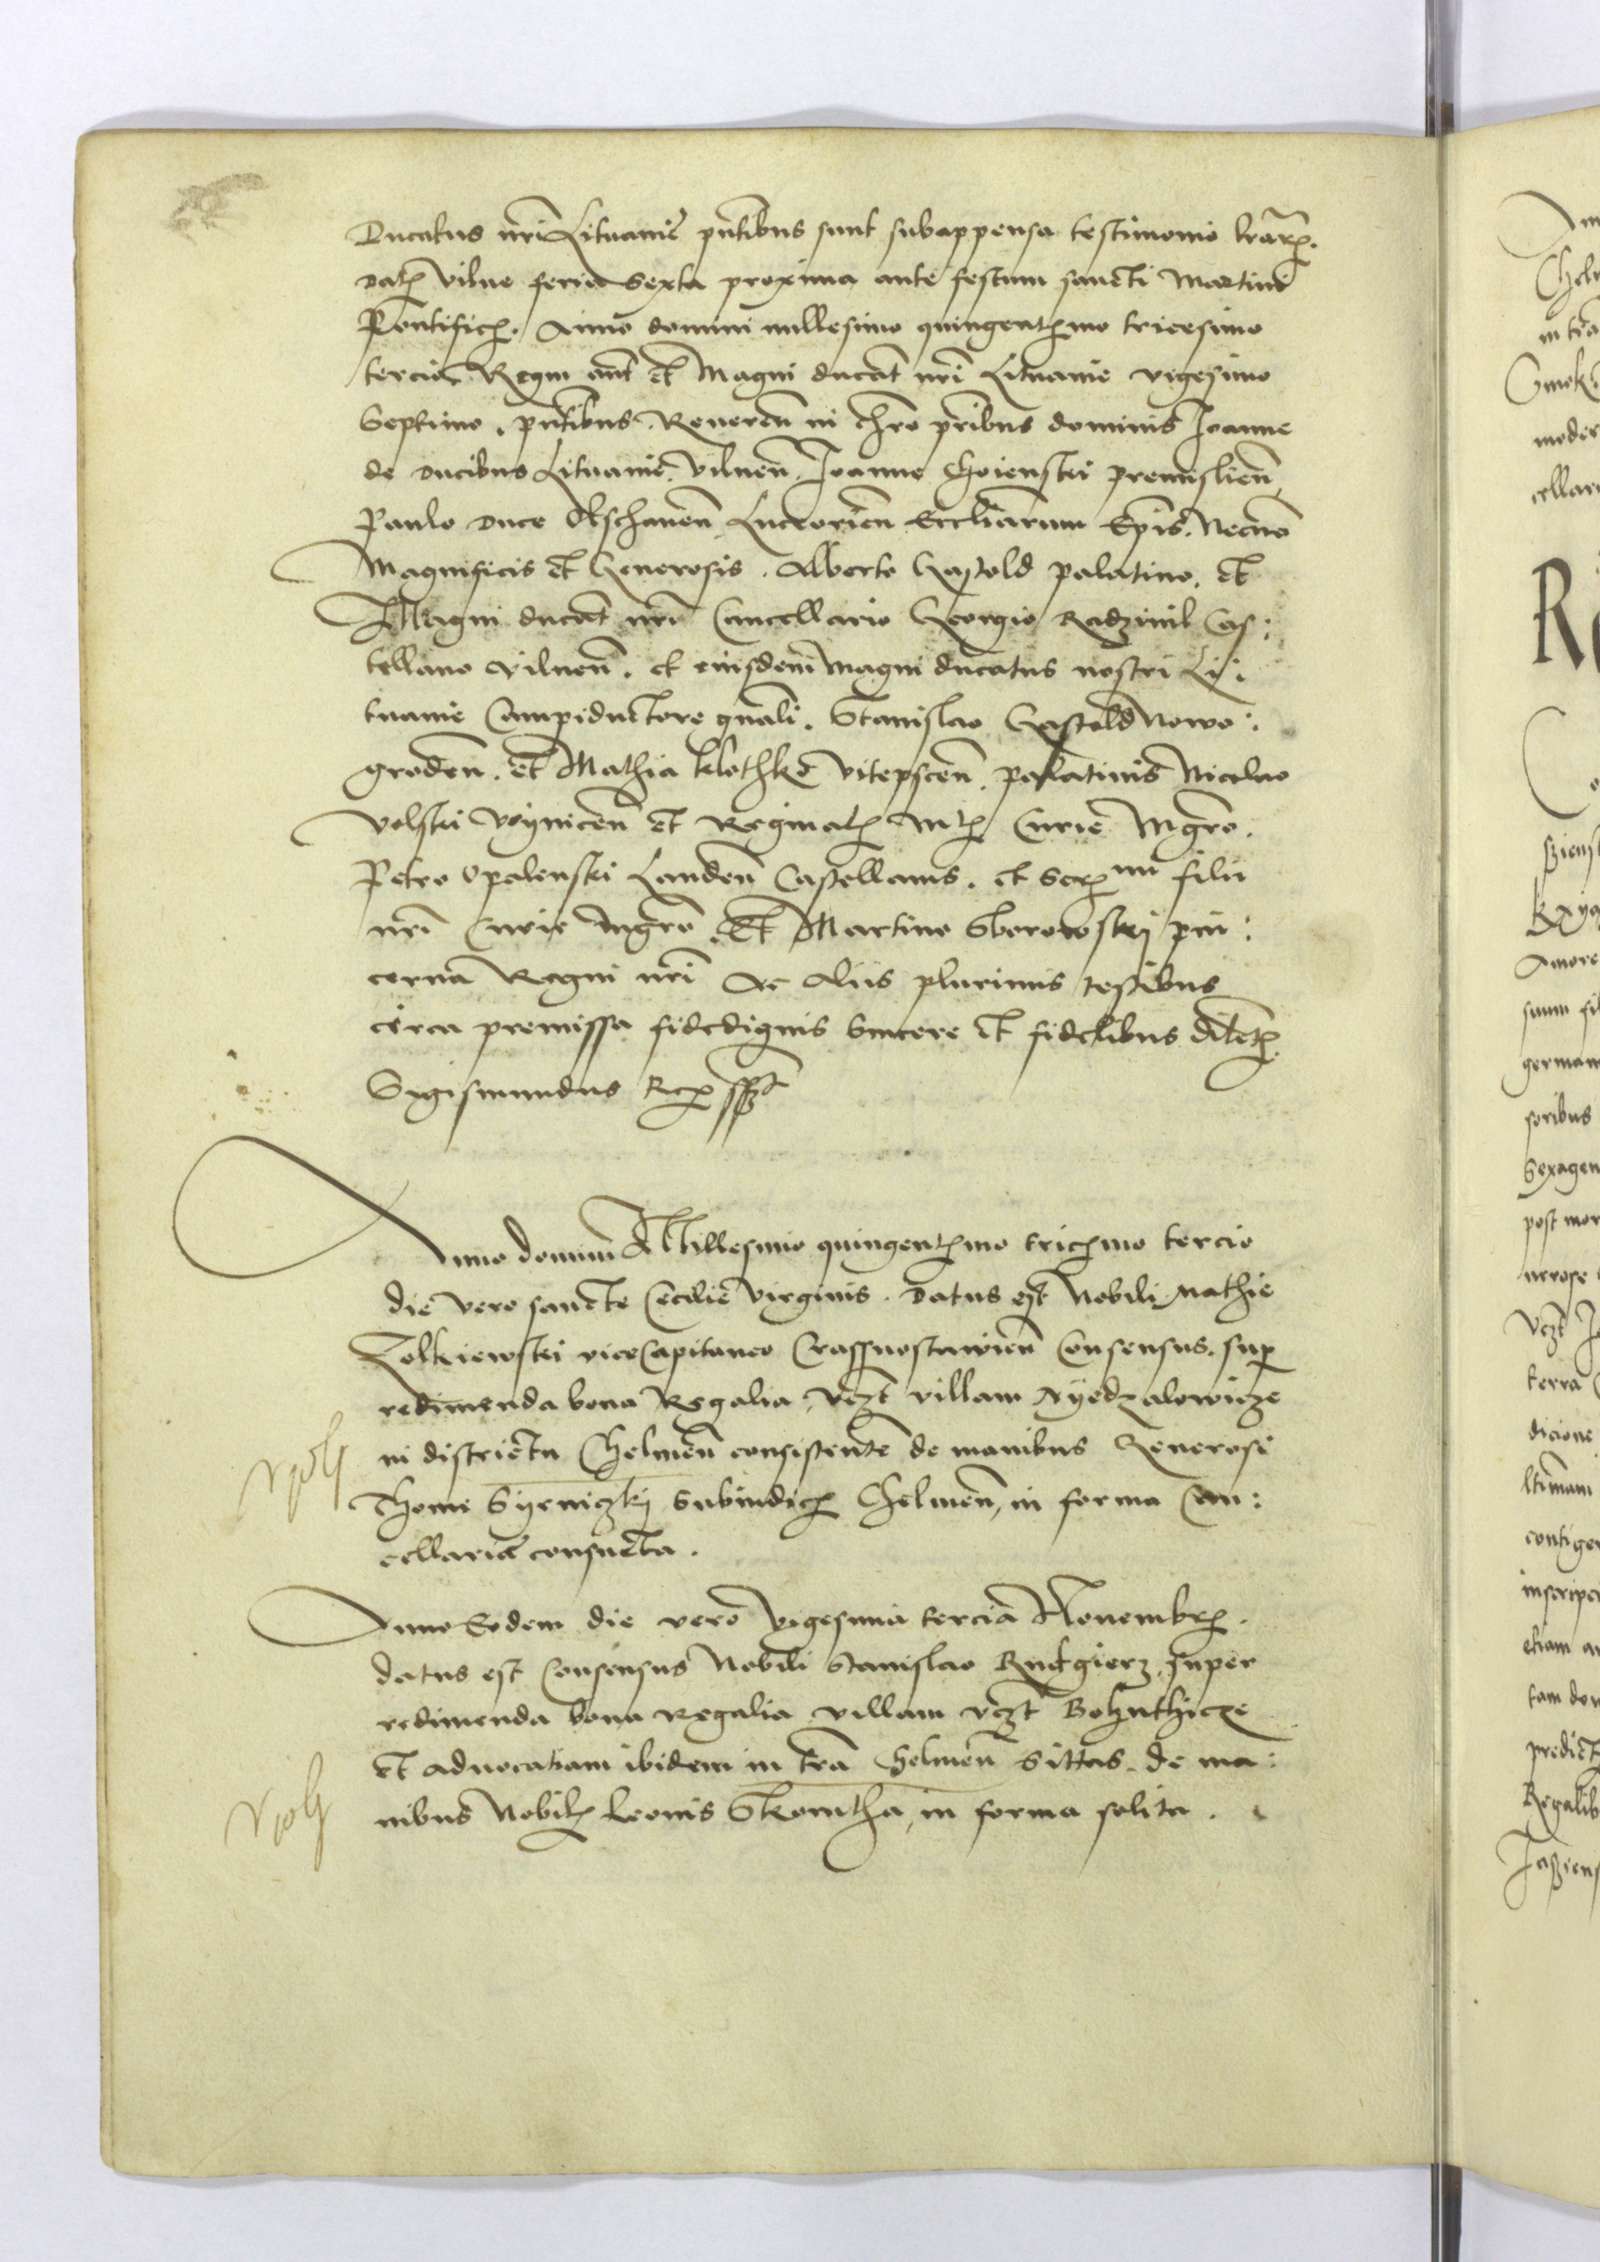 Ducatus nri Lituanie pntibus sunt subappensa testimonio lrar.
Dat Vilne feria Sexta proxima ante festum sancti Martini
Pontific. Anno domini millesimo quingentmo tricesimo
tercio Regni aut et Magni ducat nri Lituanie vigesimo
Septimo. pntibus Reveren in chro pribus dominis Joanne
de ducibus Lituanie Vilnen. Joanne Choienski premislien
Paulo duce Olschanen Luceorien Eccliarum Epis. Necno
Magnificis et Generosis. Alberto Gastold palatino. et
Magni ducat nri Cancellario Georgio Radzivil Cas:
tellano Vilnen. et eiusdem magni ducatus nostri Li:
tuanie Campiductore gnali. Stanislao Gastold Nowo:
groden. et Mathia Klothko Vitepscen. palatinis Nicolao
Volski Voynicen et Reginal Mt Curie Mgro.
Petro Opalenski Landen Castellanis. et Ser mi filii
nri Curie Mgro. Et Martino Sborowskj pin:
cerna Regni nri Ac aliis plurimis testibus
circa premissa fidedignis Sincere et fidelibus dilect
Sigismundus Rex sspt
Anno domini Millesimo quingentmo tricmo tercio
die vero sancte Cecilie virginis. Datus est Nobili Mathie
Zolkiewski viceCapitaneo Crassnostawien Consensus. sup
redimenda bona Regalia, vczt villam Nyedzalowicze
in districtu Chelmen consistente de manibus Generosi
Thome Syeniczkj Subiudic Chelmen, in forma Can:
cellarie consueta.
Anno Eodem die vero Vigesima tercia Novembr.
datus est Consensus Nobili Stanislao Rudgierz, super
redimenda bona Regalia villam vczt Bohuthicze
et advocatiam ibidem in tra Chelmen Sittas. de ma:
nibus Nobil Leonis Skomtha, in forma solita.